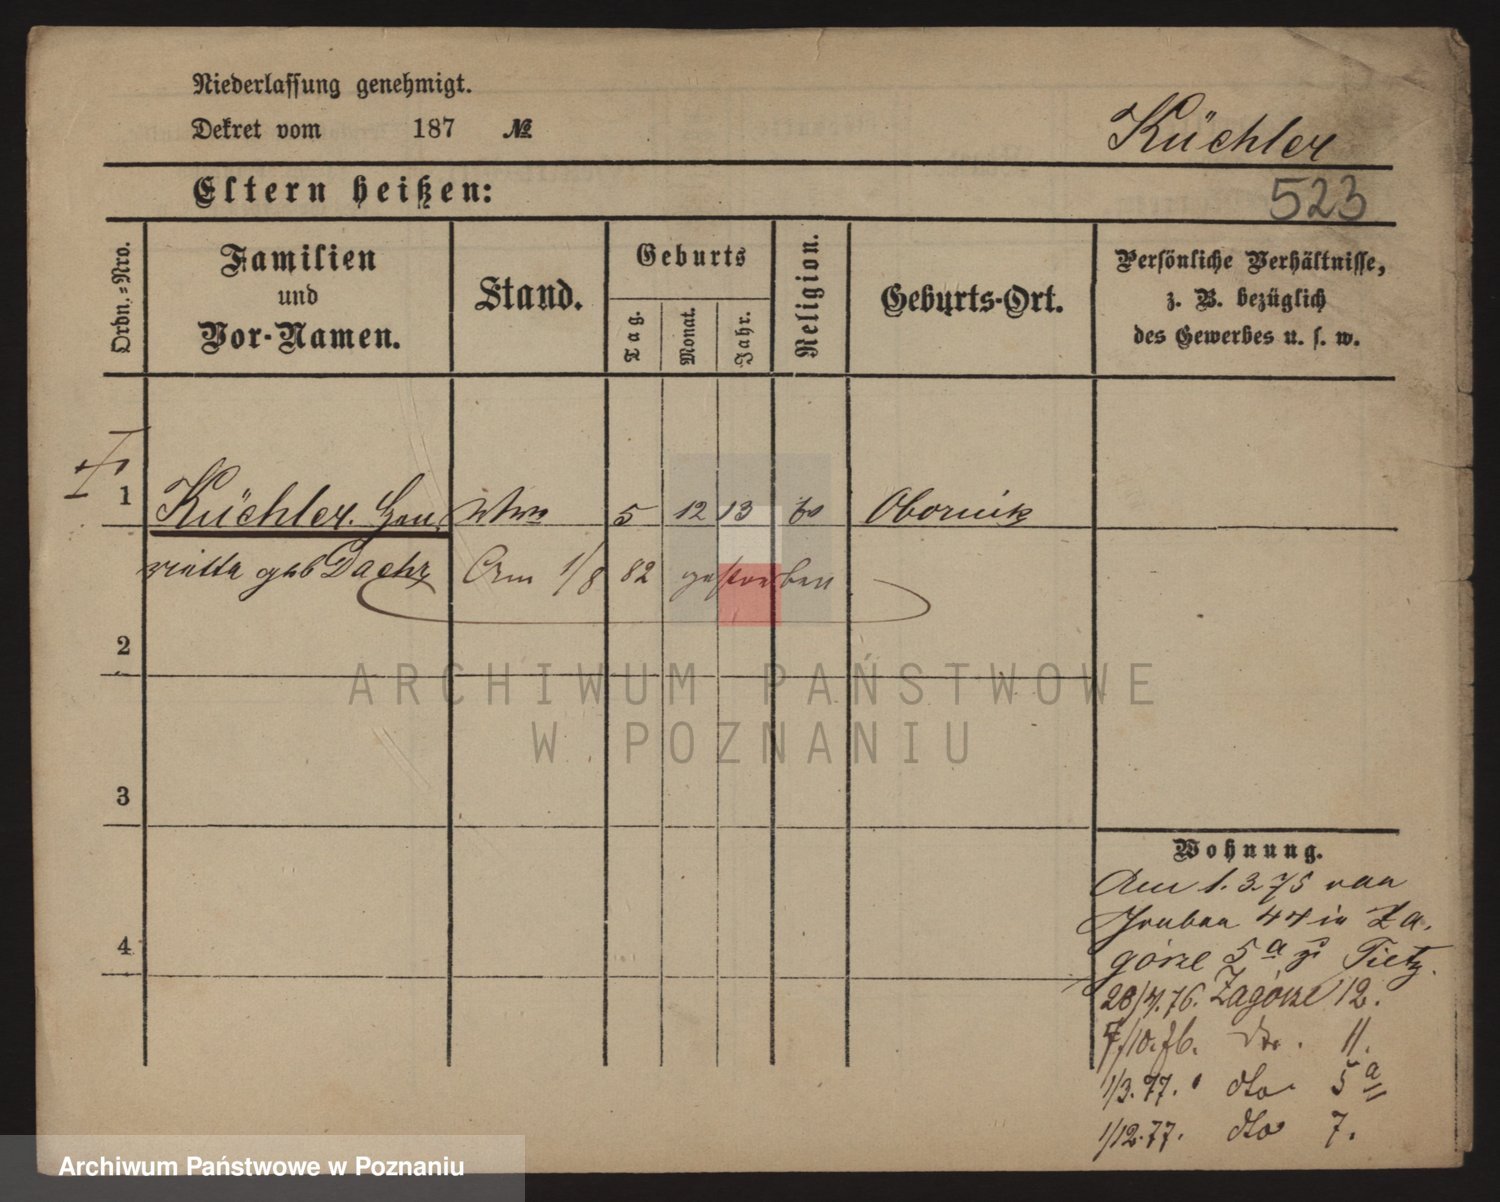 Niederlassung genehmigt.
Dekret vom 187 №
Küchler
Eltern heißen:
523
Ordn.-Nro.
Familien
und
Vor-Namen.
Stand.
Geburts
Tag.
Monat.
Jahr.
Religion.
Geburts-Ort.
Persönliche Verhältnisse,
z. B. bezüglich
des Gewerbes u. s. w.
1 Küchler. Hen Wwe 5 12 13 Obornik
rietta geb Dachz Am 1/8 82 gestorben
2
3
4
ARCHIWUM PAŃSTWOWE
W POZNANIU
Wohnung.
Am 1.3.75 von
Gruben 44 in Za,
górze 5a Tietz.
28/4.76. Zagórze 12.
7/10.76. dto. 11.
1/3.77. dto 5a
1/12.77. dto 7.
Archiwum Państwowe w Poznaniu